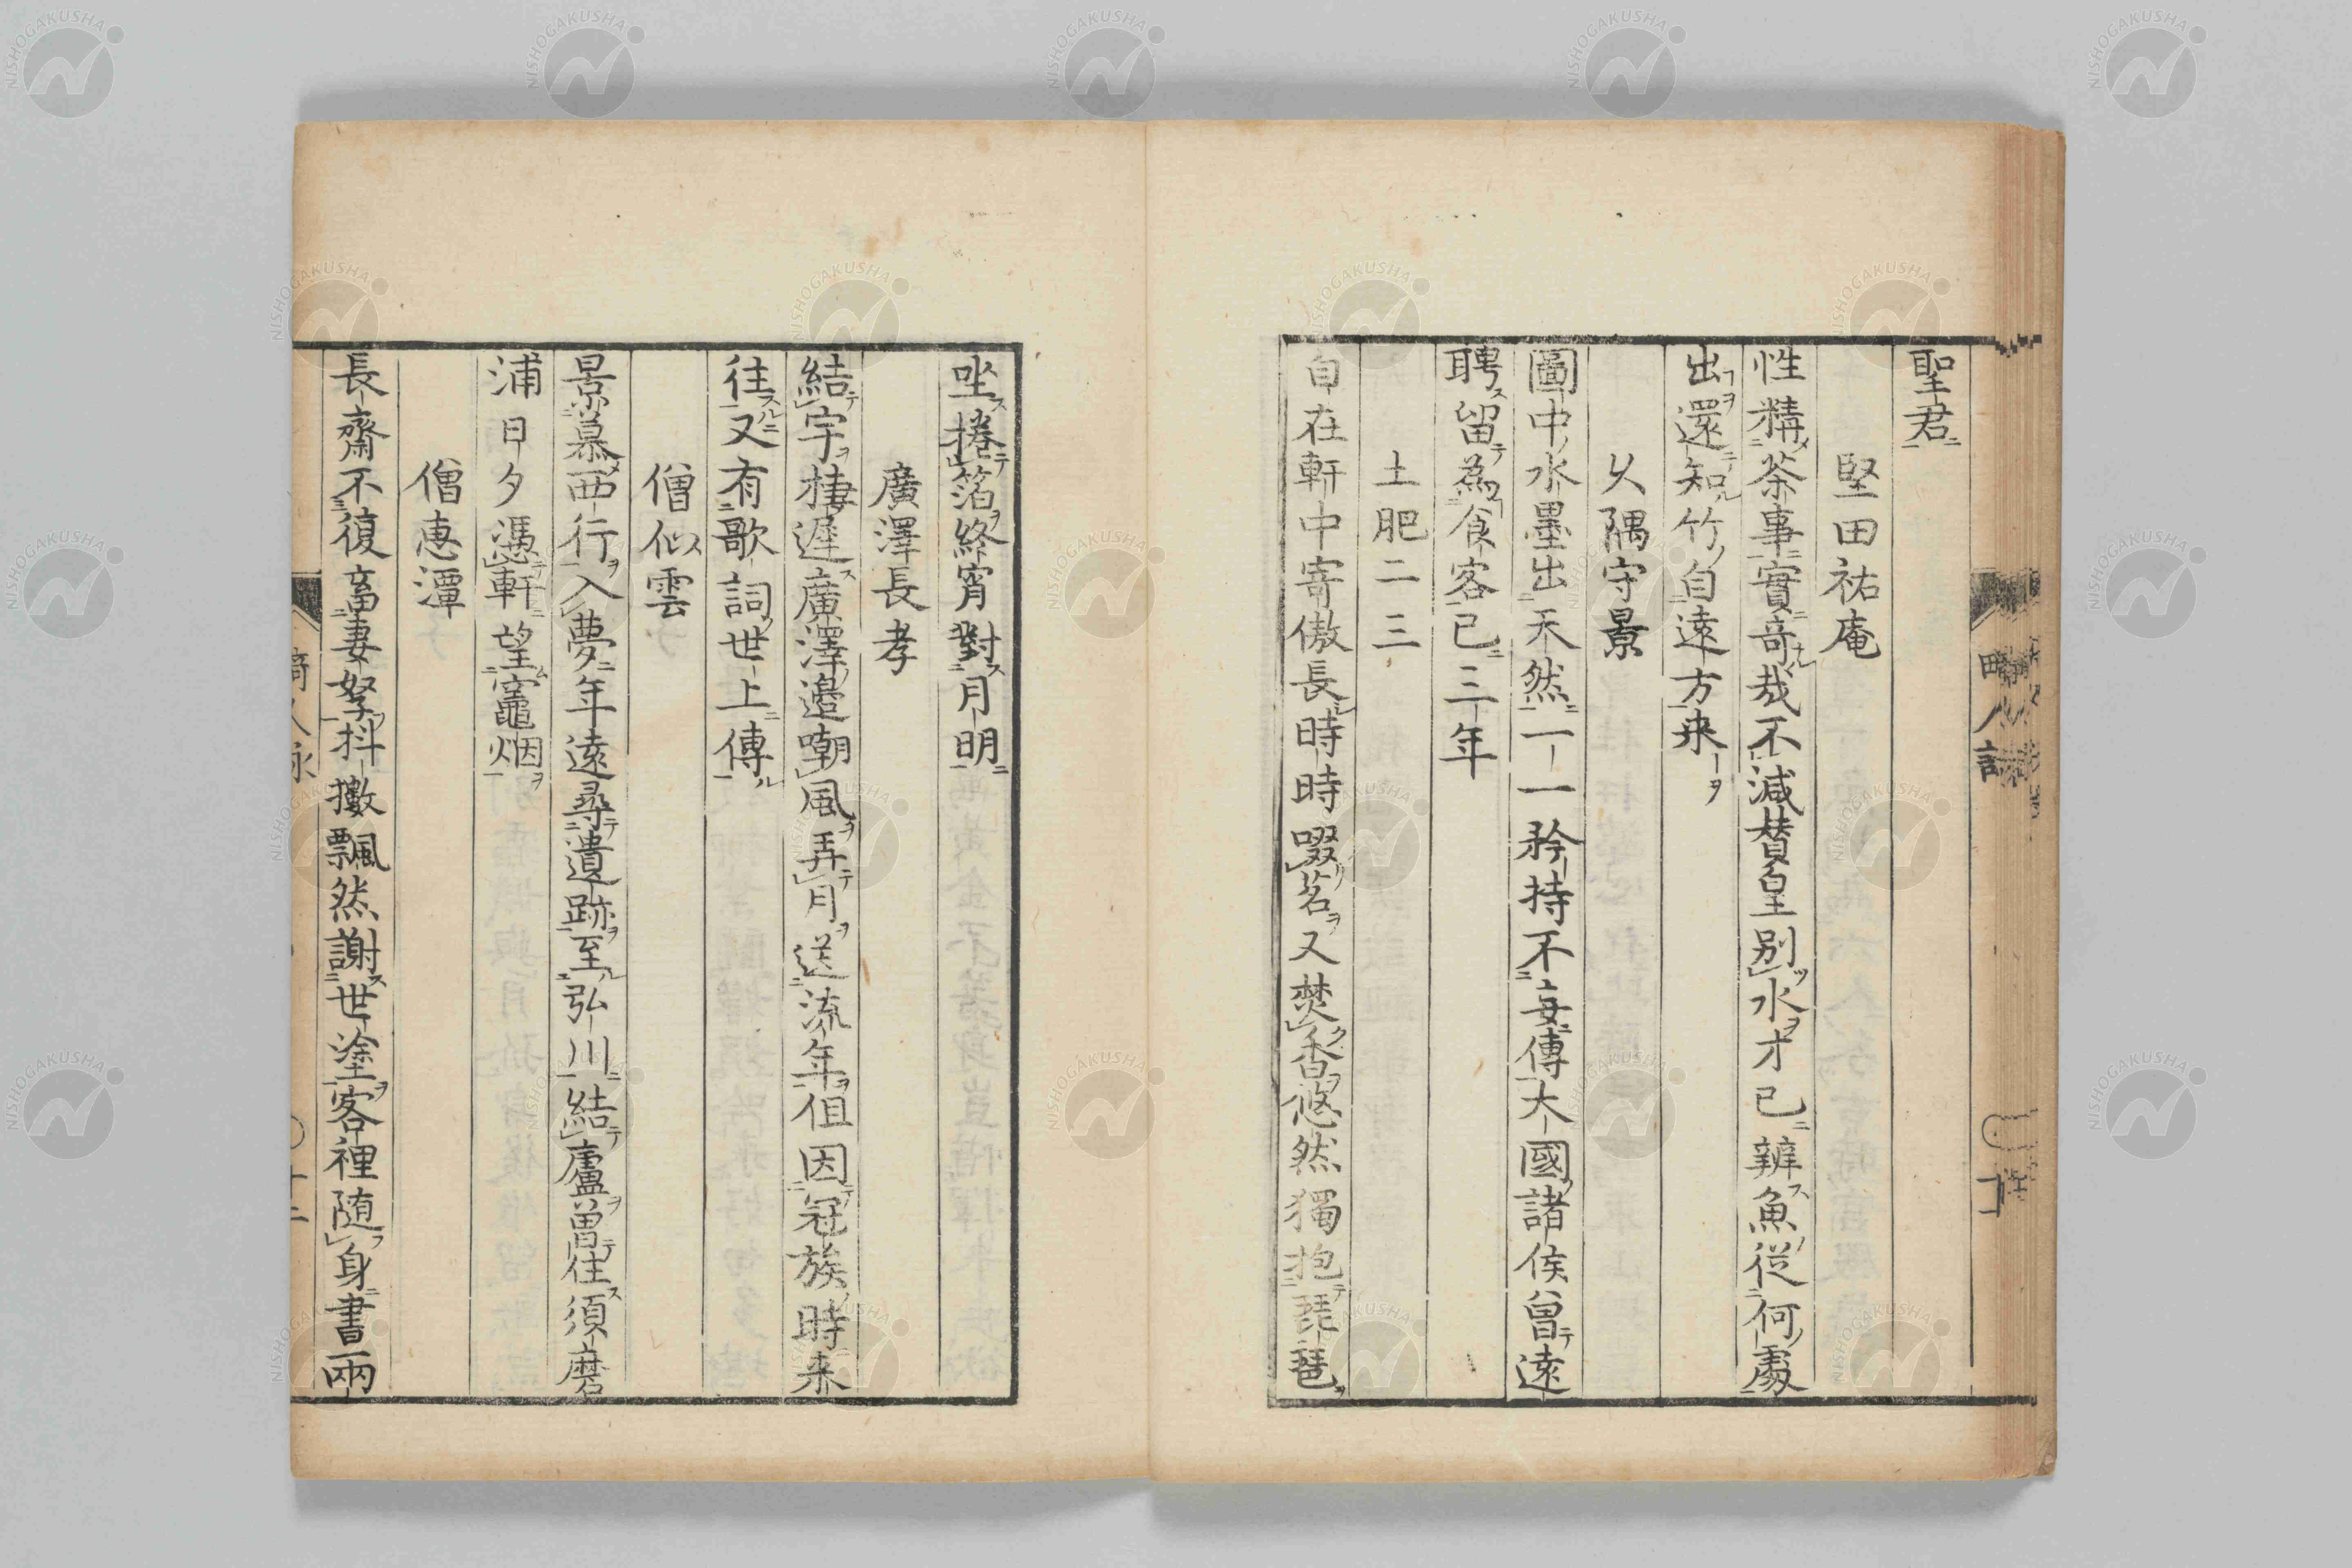 聖君
堅田祐庵
性精茶事實奇哉不減賛皇別水才已辨魚從何處
出還知竹自遠方来
久隅守景
圖中水墨出天然一一矜持不妄傳大國諸侯曾遠
聘留為食客已三年
土肥二三
自在軒中寄傲長時時啜茗又焚香悠然獨抱琵琶
坐捲箔終宵對月明
廣澤長孝
結宇棲遲廣澤邉嘲風弄月送流年但因冠族時来
往又有歌詞世上傳
僧似雲
景慕西行入夢年遠尋遺跡至弘川結廬曽住須磨
浦日夕憑軒望竈烟
僧恵潭
長齋不復畜妻孥抖擻飄然謝世塗客裡随身書兩
NISHOGAKUSHA